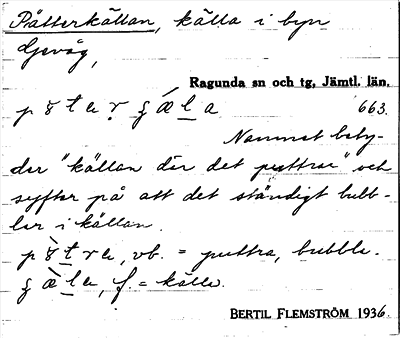 Påtterkällan, källa i byn
Gevåg,
Ragunda sn och tg, Jämtl. län.
663.
Namnet bety-
der "källan där det puttrar" och
syftar på att det ständigt bubb-
lar i källan.
vb. = puttra, bubbla.
f. = källa.
BERTIL FLEMSTRÖM 1936.